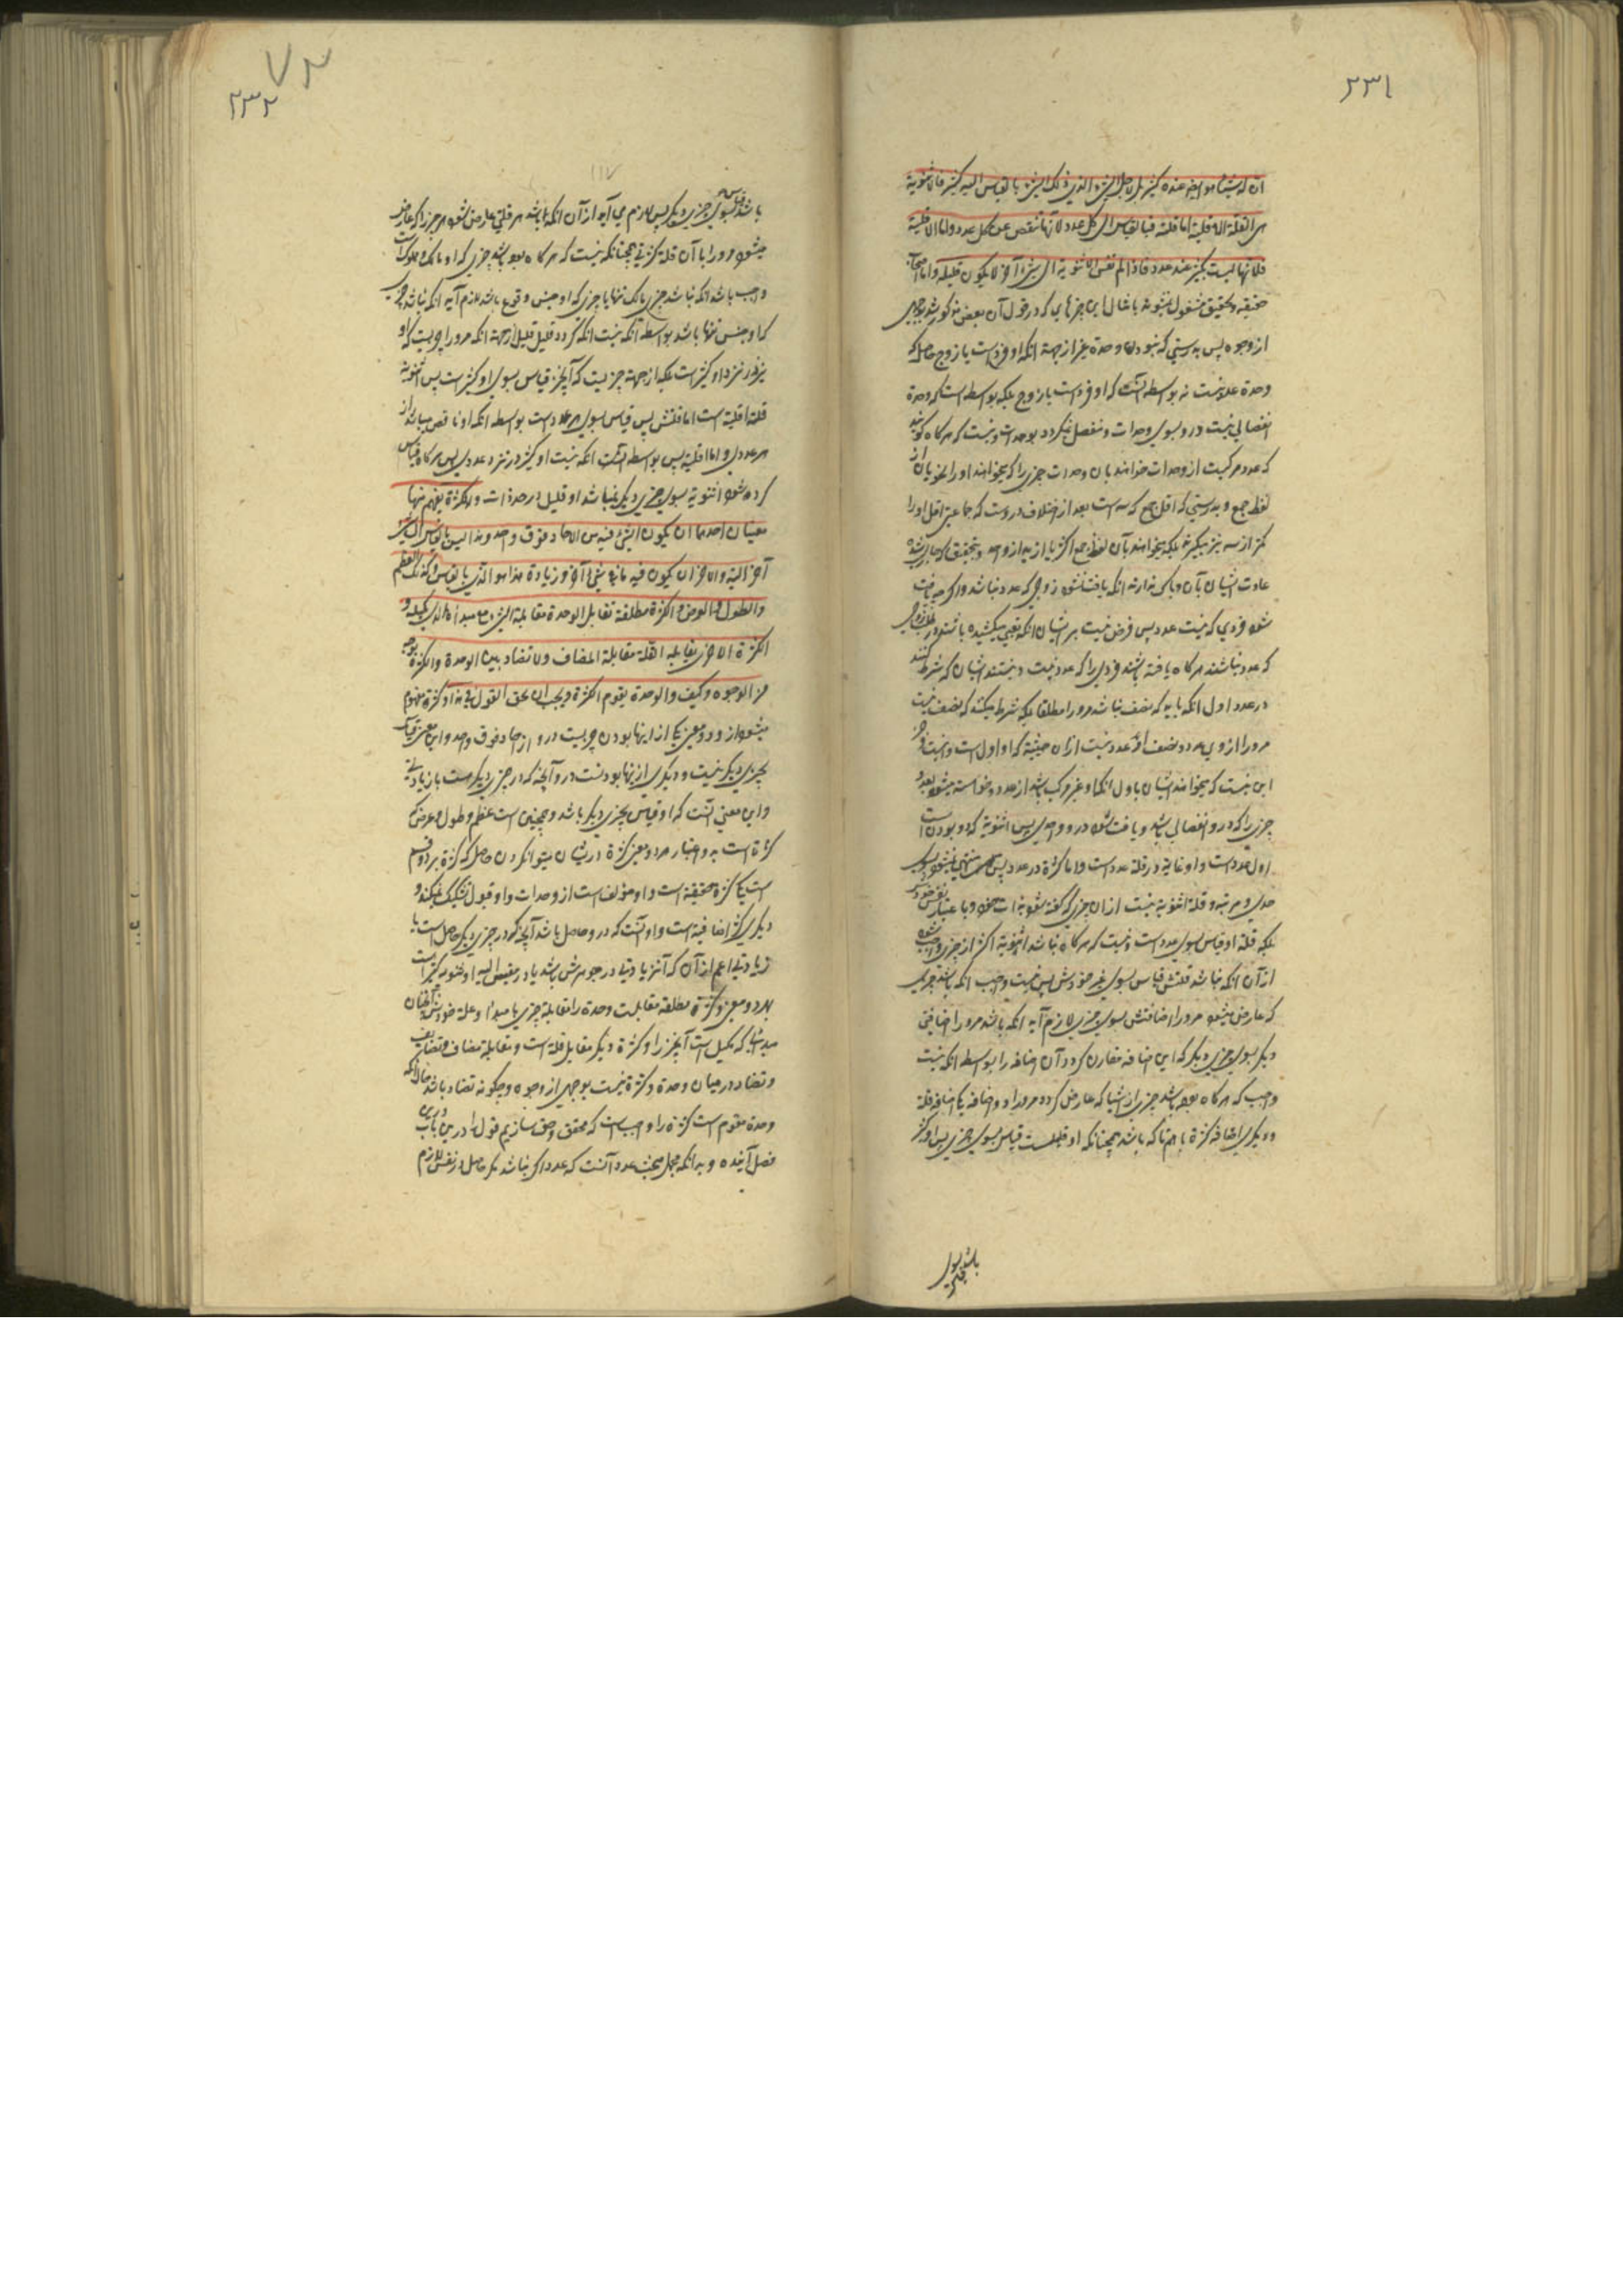 ٢٣١
ان له شيئا هو ايضا عنده كثير بل لاجل الشيء الذي ذلك الشيء بالقياس اليه كثير فالاثنوية
هي القلة الاقلية اما قلته فبالقياس الى كل عدد لانها تنقص عن كل عدد واما الاقلية
فلانها ليست بكثير عند عدد فاذا لم تقس الاثنوية الى شيء آخر لا يكون قليلة واما اصحاب
حقیقه و تحقیق مشغول نمیشوند بامثال این چیزهایی که در قول آن بعض مذکور شد بوجهی
از وجوه پس بدرستی که نبودن وحدة غیر از جهة انکه او فرد است یا زوج حاصل که
وحدة عدد نیست نه بواسطه آنست که او فرد است یا زوج بلکه بواسطه است که وحدة
انفصالی نیست در و بسوی وحدات و منفصل نمیگردد بوحدات و نیست که هر کاه گویند
که عدد مرکبست از وحدات خواهند بان وحدات چیزی را که میخوانند او را نحویان از
لفظ جمع و بدرستی که اقل جمع که سه است بعد از اختلاف در وست که جماعتی اقل او را
کمتر از سه نیز میگیرند بلکه میخواهند بآن لفظ جمع اکثر یا ازید از واحد و بتحقیق که جاری شده
عادت ایشان بآن و باکی ندارند انکه یافت نشود زوجی که عدد نباشد و اگر چه یافت
شود فردی که نیست عدد پس فرض نیست بر ایشان انکه تعبی میکشیده باشند در طلب زوجی
که عدد نباشد هر کاه یافته باشند فردی را که عدد نیست و نیستند ایشان که شرط کنند
در عدد اول انکه باید که نصف نباشد مر او را مطلقا بلکه شرط میکنند که نصف نیست
مر او را از روی عدد و نصف او عدد نیست از ان حیثیة که او اول است و نیست جز
این نیست که میخواهند ایشان باول انکه او غیر مرکب باشد از عدد و خواسته میشود بعدد
چیزی را که در و انفصالی باشد و یافت شود در و واحدی پس اثنویة که دو بودن است
اول عدد است و او غایة در قلة عدد است و اما کثرة در عدد پس منتهی نمیشود بسوی
حدی و مرتبه و قلة اثنویة نیست از ان چیزی که گفته میشود بذات خود و باعتبار نفس خودش
بلکه قلة او قیاس بسوی عدد است و نیست که هر کاه نباشد اثنویة اکثر از چیزی واجب شود
از آن انکه نباشد قلتش قیاس بسوی غیر خودش پس نیست واجب انکه باشد چیزی
که عارض میشود مر او را اضافتش بسوی چیزی لازم آید انکه باشد مر او را اضافتی
دیگر بسوی چیزی دیگر که این اضافه مقارن گردد آن اضافه را بواسطه انکه نیست
واجب که هر کاه بوده باشد چیزی از اشیا که عارض گردد مر او را دو اضافه یکی اضافه قلة
و دیگری اضافه کثرة باهم تا که باشد همچنانکه او قلیلست قیاس بسوی چیزی پس او کثیر
باشد بسوی
چیزی
٢٣٢
باشد قیاس بسوی چیزی دیگر پس لازم می آید از آن انکه باشد هر قلتی عارض شود هر چیزی را که عارض
میشود مر او را با آن قلة کثرتی همچنانکه نیست که هر کاه بوده باشد چیزی که او مالک و مملوک است
واجب باشد انکه نباشد چیزی مالک تنها یا چیزی که او جنس و نوع باشد لازم آید انکه نباشد چیزی
که او جنس تنها باشد بواسطه آنکه نیست انکه گردد قلیل قلیل از جهة انکه مر او را چیزیست که او
نیز در نزد او کثیر است بلکه از جهة چیزیست که آنچیز قیاس بسوی او کثیر است پس اثنویة
قلة اقلیة است اما قلتش پس قیاس بسوی هر عدد است بواسطه انکه او ناقص میباشد از
هر عددی و اما اقلیة پس بواسطه آنست انکه نیست او کثیر در نزد عددی پس هر کاه قیاس
کرده نشود اثنویة بسوی چیزی دیگر نمیباشد او قلیل در حد ذات والكثرة يفهم منها
معنيان احدهما ان يكون الشيء فيه من الاحاد فوق واحد وهذا ليس بالقياس الى شيء
آخر البتة والآخر ان يكون فيه ما في شيء آخر وزيادة هذا هو الذي بالقياس وكذلك العظم
والطول والعرض والكثرة مطلقة تقابل الوحدة مقابلة الشيء مع مبدأه الذي يكيله و
الكثرة الاخرى تقابله القلة مقابلة المضاف ولا تضاد بين الوحدة والكثرة بوجه
من الوجوه وكيف والوحدة تقوم الكثرة ويجب ان نحقق القول في هذا و کثرة مفهوم
میشود از و دو معنی یکی از اینها بودن چیزیست در و از احاد فوق واحد و این معنی قیاس
بچیزی دیگر نیست و دیگری از اینها بودنست در و آنچه که در چیزی دیگرست با زیادتی
و این معنی آنست که او قیاس بچیزی دیگر باشد و همچنین است عظم و طول و عرض که
کثرة است بدو اعتبار هر دو معنی کثرة در ایشان میتوان کردن حاصل که کثرة بر دو قسم
است یکی کثرة حقیقة است و او مؤلف است از وحدات و او قبول تشکیک نمیکند و
دیگری کثرة اضافیة است و او آنست که در و حاصل باشد آنچه که در چیزی دیگر حاصل است با
زیادتی اعم از آن که آنزیادتی در جوهرش باشد یا در مقیس الیه او
بهر دو معنی و کثرة مطلقه مقابلست وحدة را مقابلة چیزی با مبدأ و علة خودش آنچنان
مبدائی که مکیل است آنچیز را و کثرة دیگر مقابل قلة است و مقابلة مضاف و تضایف
و تضاد در میان وحدة و کثرة نیست بوجهی از وجوه و چگونه تضاد باشد حالانکه
وحدة مقوم است کثرة را و واجب است که محقق و حق سازیم قول را درین باب در
فصل آینده و بدانکه مجمل مبحث عدد آنست که عدد اگر نباشد مگر حاصل در نفس لازم